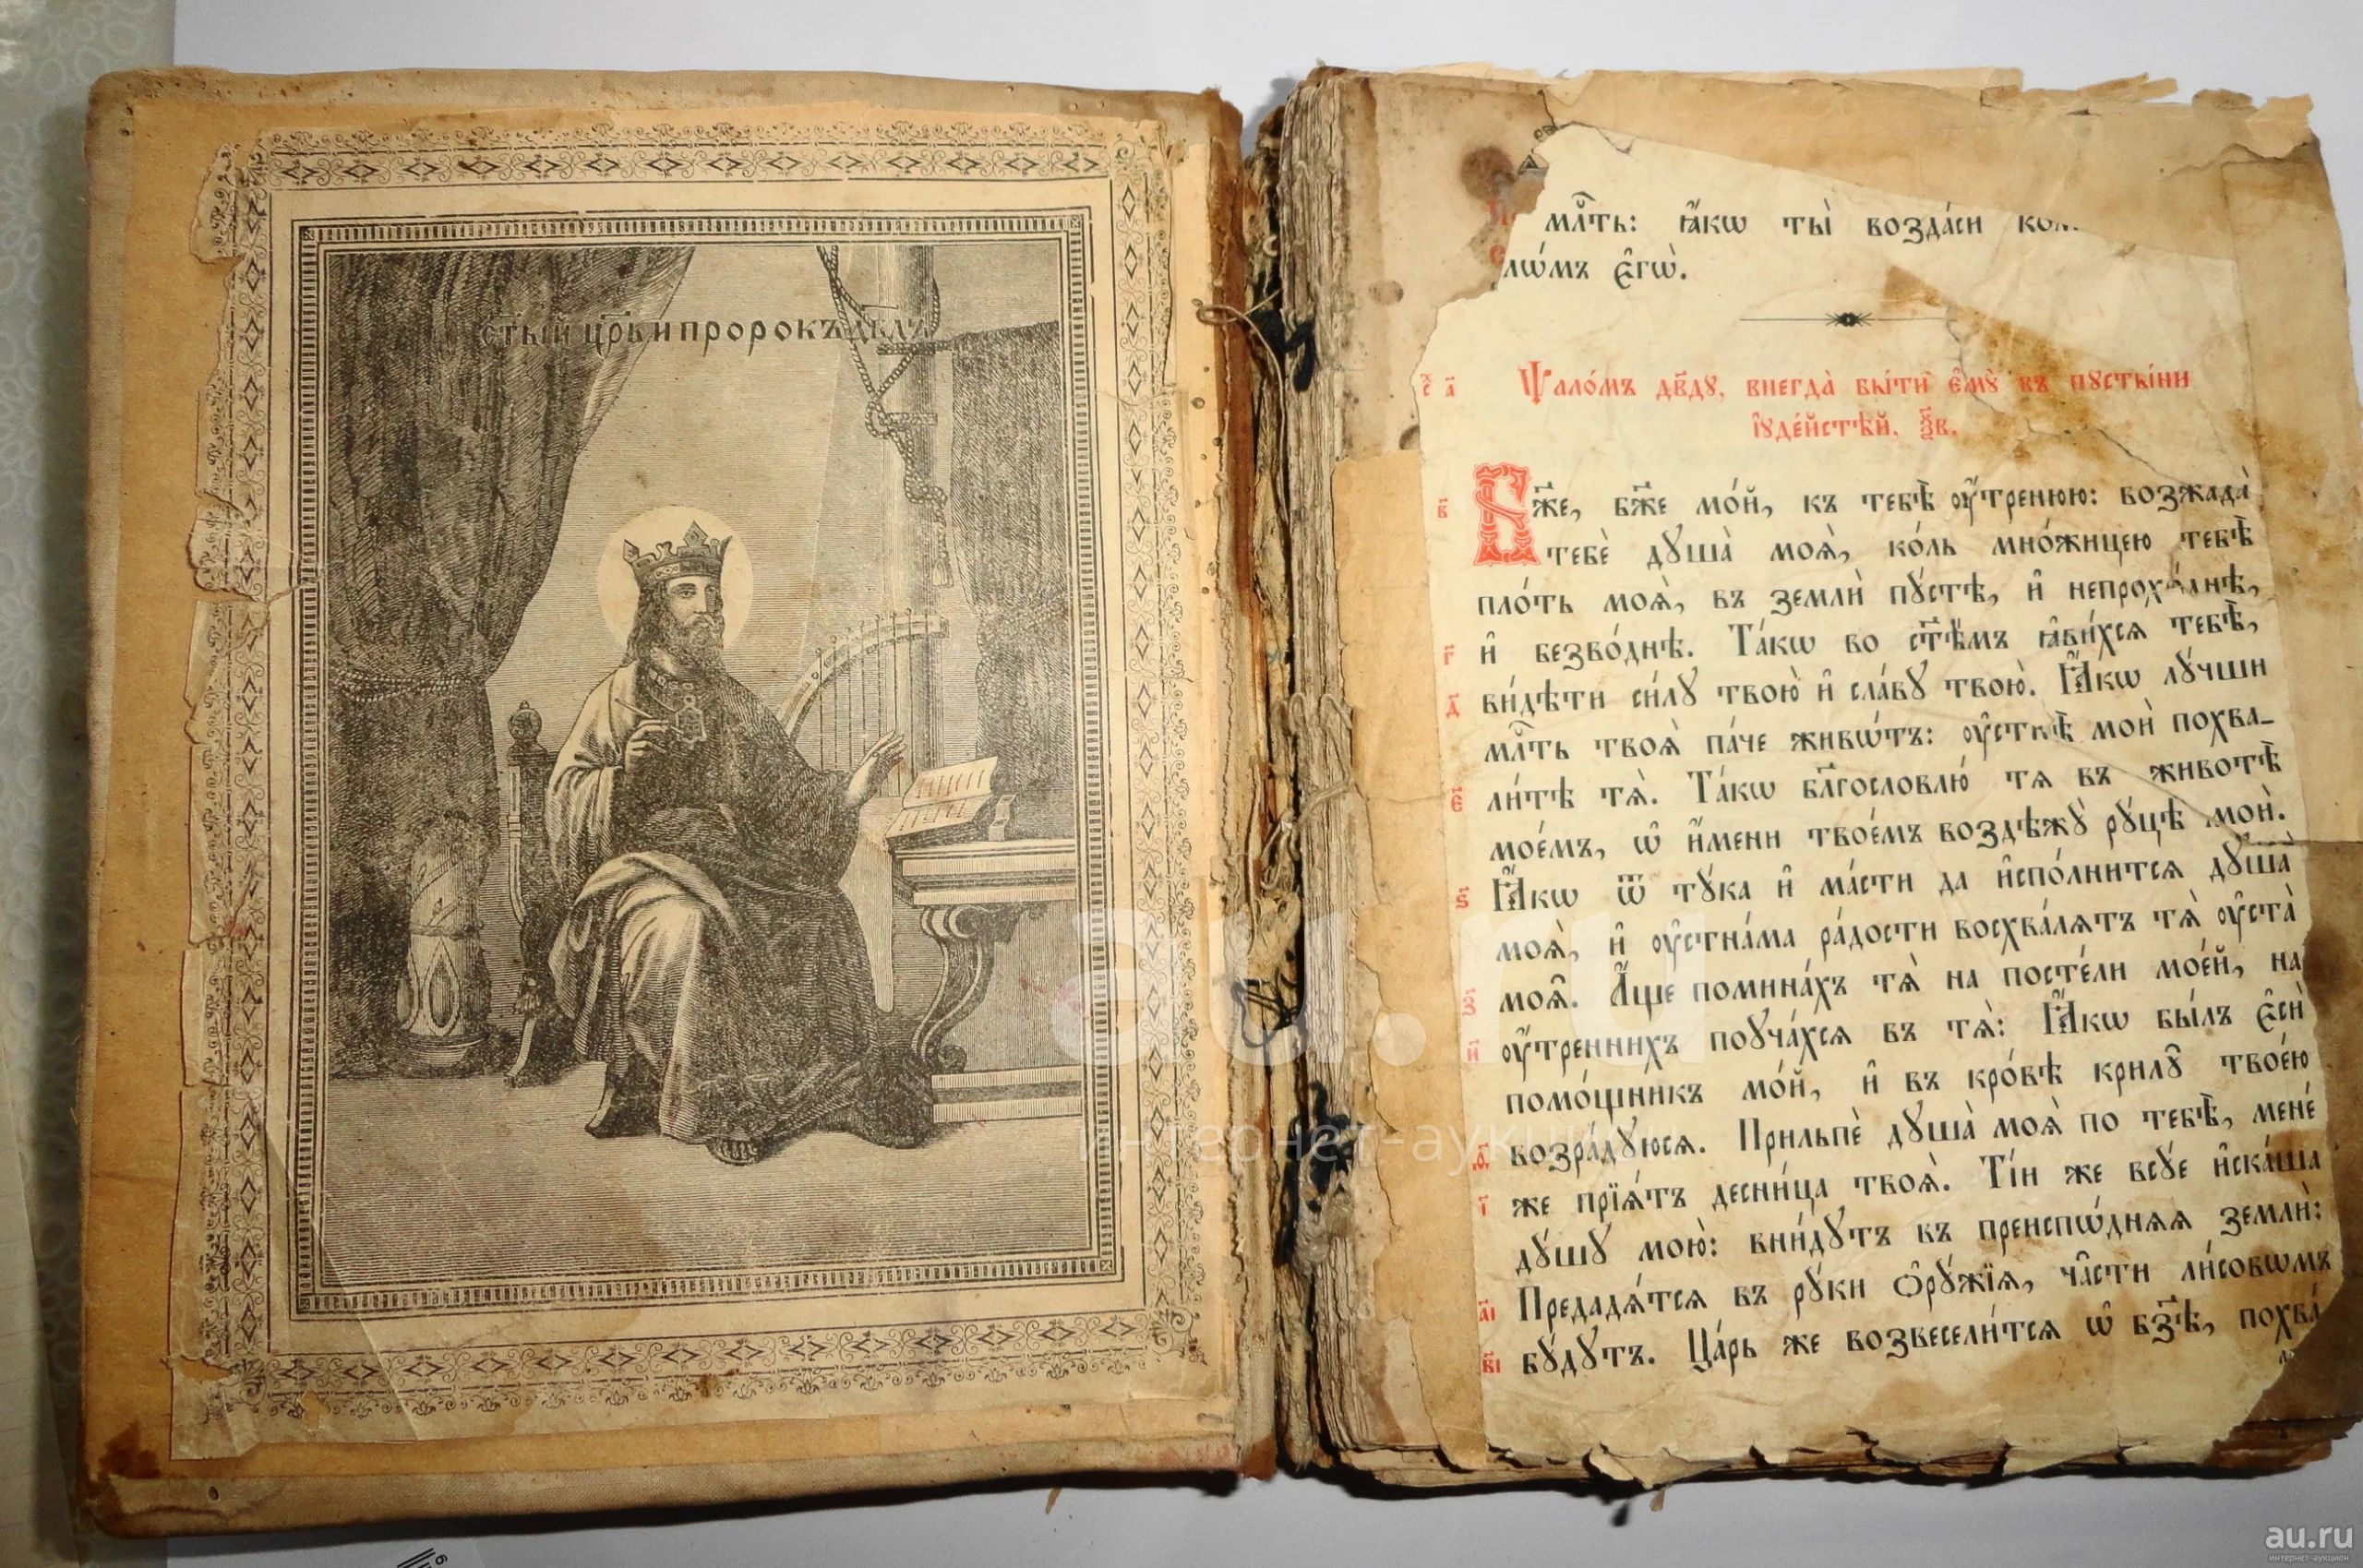 ст҃ы́й цр҃ь и пророкъ дв҃дъ
мл҃ть: ꙗ҆́кѡ ты̀ возда́си
лѡ́мъ є҆гѡ̀.
Ѱало́мъ дв҃ду, внегда̀ бы́ти є҆мꙋ̀ въ пꙋсты́ни
і҆ꙋде́йстѣй, ѯ҃в.
в҃ Бж҃е, бж҃е мо́й, къ тебѣ̀ ᲂу҆́тренюю: возжада̀
тебѐ дꙋша̀ моѧ̀, ко́ль мно́жицею тебѣ̀
пло́ть моѧ̀, въ землѝ пꙋ́стѣ, и҆ непрохо́днѣ,
г҃ и҆ безво́днѣ. Та́кѡ во ст҃ѣ́мъ ꙗ҆ви́хсѧ тебѣ̀,
д҃ ви́дѣти си́лꙋ твою̀ и҆ сла́вꙋ твою̀. Ꙗ҆́кѡ лꙋ́чши
мл҃ть твоѧ̀ па́че живѡ́тъ: ᲂу҆стнѣ̀ моѝ похва-
є҃ ли́тѣ тѧ̀. Та́кѡ бл҃гословлю́ тѧ въ животѣ̀
мое́мъ, ѡ҆ и҆́мени твое́мъ воздѣжꙋ̀ рꙋцѣ̀ моѝ.
ѕ҃ Ꙗ҆́кѡ ѿ тꙋ́ка и҆ ма́сти да и҆спо́лнитсѧ дꙋша̀
моѧ̀, и҆ ᲂу҆стна́ма ра́дости восхва́лѧтъ тѧ̀ ᲂу҆ста̀
з҃ моѧ̑. А҆́ще помина́хъ тѧ̀ на посте́ли мое́й, на
и҃ ᲂу҆́тренних̾ поꙋча́хсѧ въ тѧ̀: Ꙗ҆́кѡ бы́лъ є҆сѝ
помо́щникъ мо́й, и҆ въ кро́вѣ крилꙋ̑ твое́ю
ѳ҃ возра́дꙋюсѧ. Прильпѐ дꙋша̀ моѧ̀ по тебѣ̀, мене́
і҃ же прїѧ́тъ десни́ца твоѧ̀. Ті́и же всꙋ́е и҆ска́ша
дꙋ́шꙋ мою̀: вни́дꙋтъ въ преиспѡ́днѧѧ землѝ:
а҃і Предадѧ́тсѧ въ рꙋ́ки ѻ҆рꙋ́жїѧ, ча̑сти ли́совѡмъ
в҃і бꙋ́дꙋтъ. Ца́рь же возвесели́тсѧ ѡ҆ бз҃ѣ, похва́
au.ru
интернет-аукцион
au.ru
интернет-аукцион